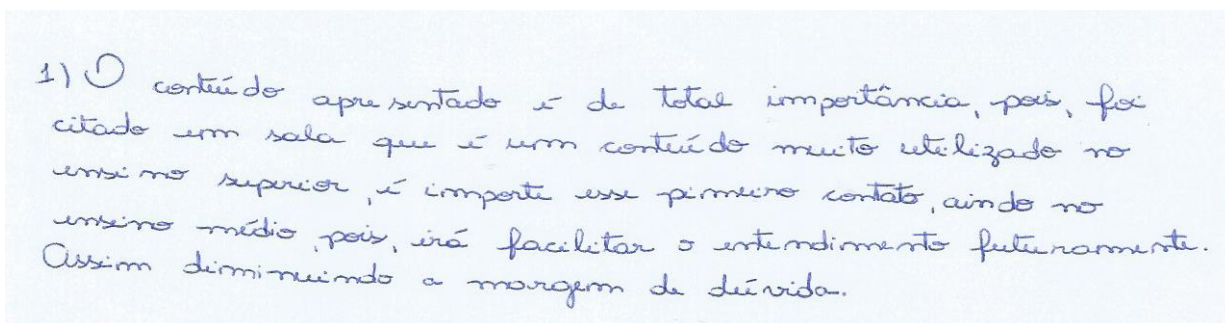 1) O conteúdo apresentado é de total importância, pois, foi
citado em sala que é um conteúdo muito utilizado no
ensino superior, é importe esse pimeiro contato, aindo no
ensino médio, pois, irá facilitar o entendimento futuramente.
Assim diminuindo a margem de dúvida.